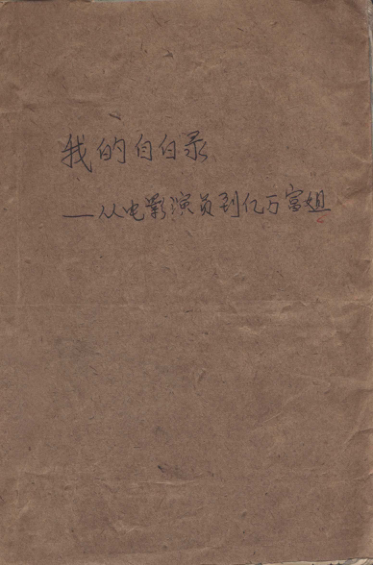 我的自白录
—从电影演员到亿万富姐